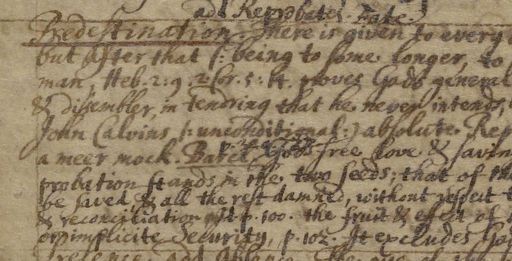 ad Reprobates Fate.
Predestination. There is given to every
but after that (: being to some longer, to
man, Heb. 2: 9. 2 Cor. 5: 14. proves Gods general
& dissembler, in tendring that he never intends,
John Calvins (: unconditional :) absolute Rep
a meer mock. Barcl. Gods free love & savin
probation stands in the two seeds; that of the
be saved & all the rest damned, without respect t
& reconciliation p. 100. the fruit & efect of
or implicite Security, p. 102. It excludes Go